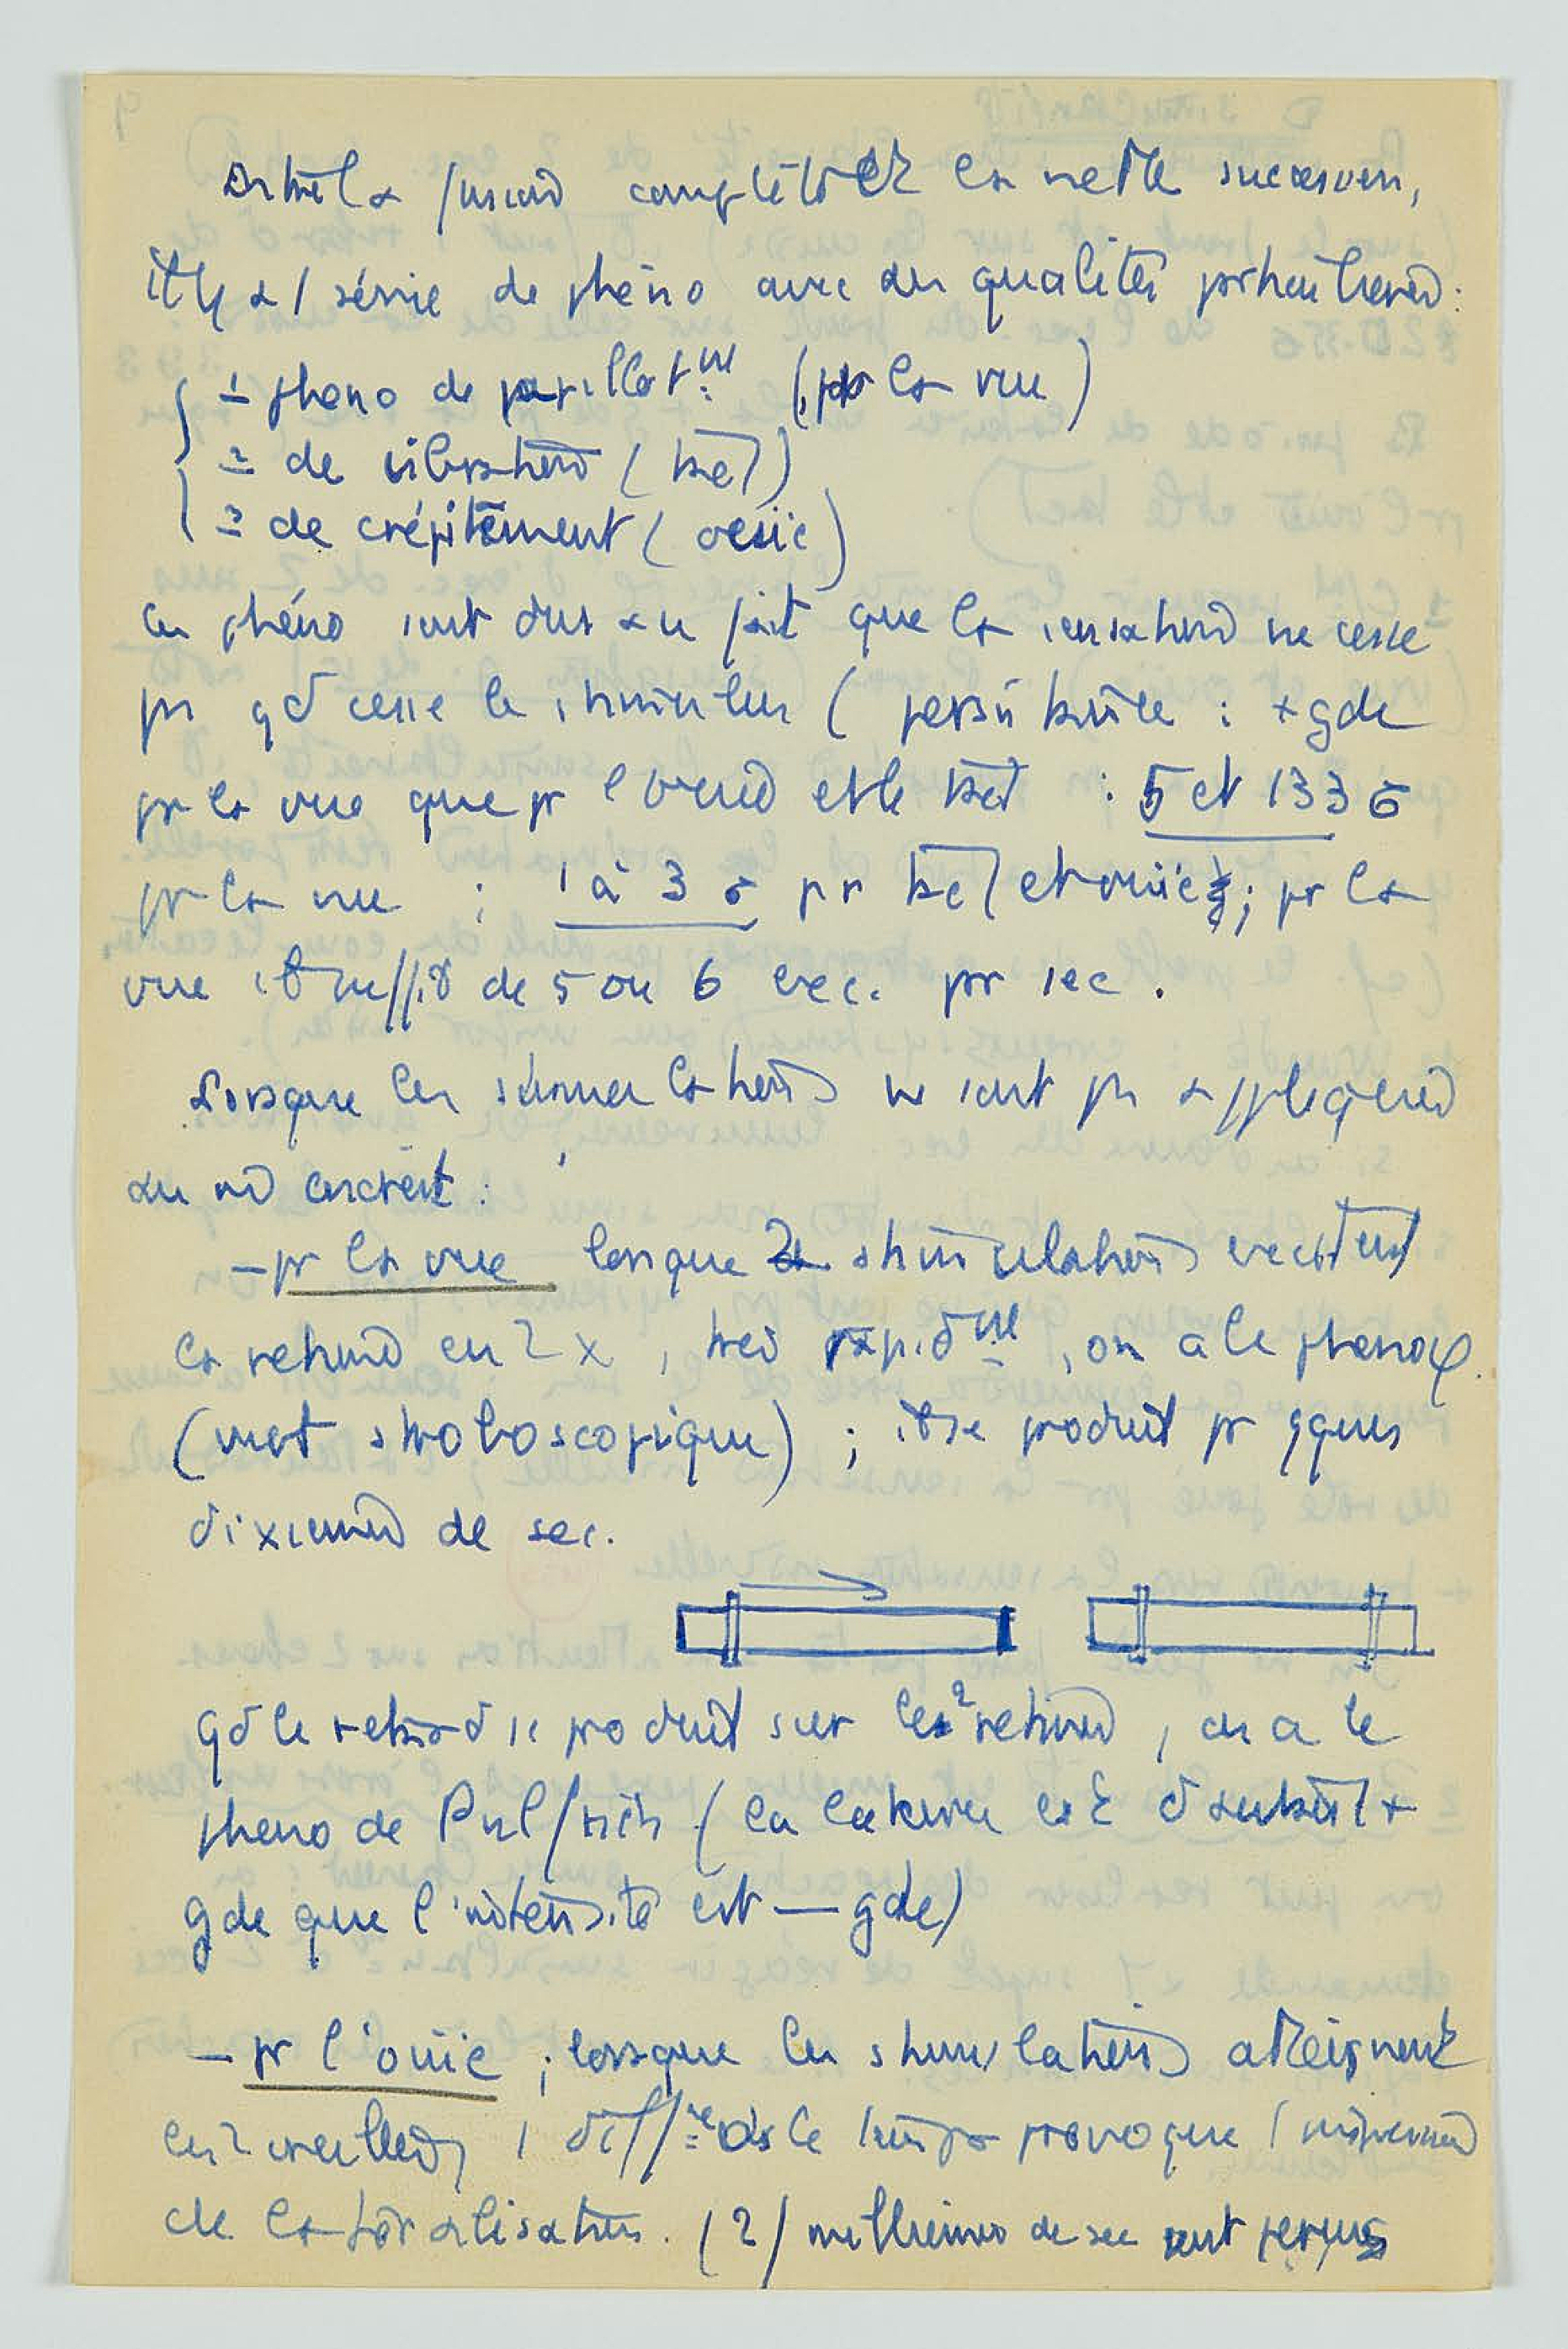 Entre la fusion complète et la nette succession,
il y a 1 série de phéno avec des qualités particulières :
1 phéno de papillot.nt (pr la vue)
2 de vibration (tact)
3 de crépitement (ouïe)
Ces phéno sont dus au fait que la sensation ne cesse
pas qd cesse le stimulus ( persistance : + gde
pr la vue que pr l'oreille et le tact : 5 et 133 σ
pr la vue ; 1 à 3 σ pr tact et ouïe ; pr la
vue il suffit de 5 ou 6 exc. par sec.
Lorsque les stimulations ne sont pas appliquées
au m endroit :
- pr la vue lorsque 2 stimulations excitent
la rétine en 2 x, très rapid.nt, on a le phéno φ
(mvt stroboscopique) ; il se produit pr qques
dixièmes de sec.
qd le retard se produit sur les 2 rétines, on a le
phéno de Pulfrich (la latence est d'autant +
gde que l'intensité est — gde)
- pr l'ouïe ; lorsque les stimulations atteignent
les 2 oreilles, 1 diff.ce ds le temps provoque 1 impression
de latéralisation. (2/ millièmes de sec sont perçus